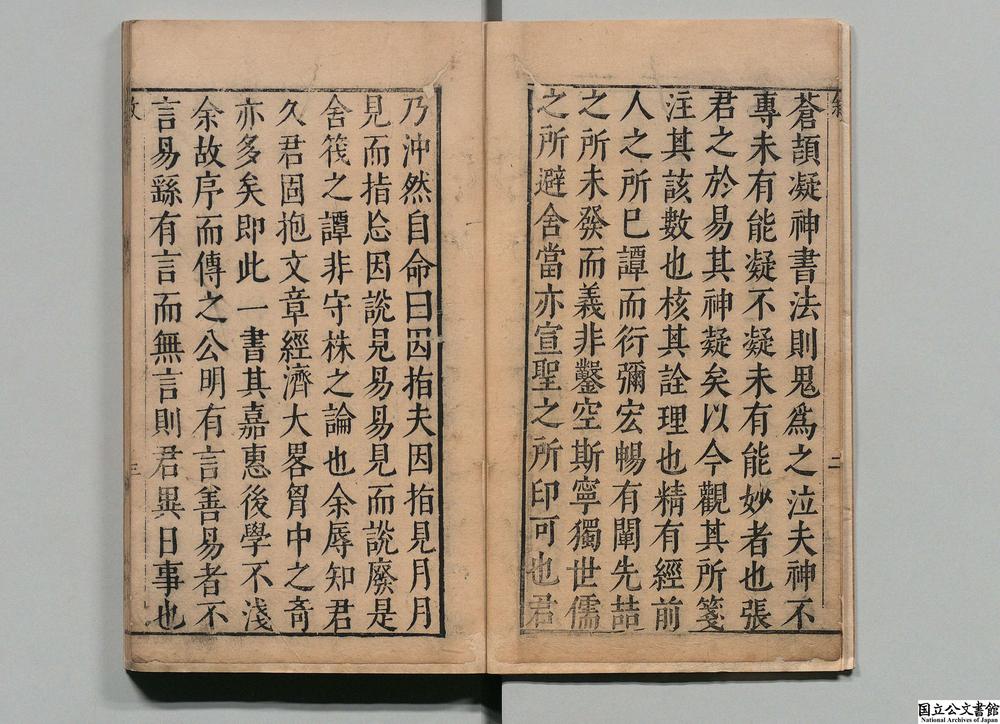 蒼頡凝神書法則鬼爲之泣夫神不
專未有能凝不凝未有能妙者也張
君之於易其神凝矣以今觀其所箋
注其該數也核其詮理也精有經前
人之所已譚而衍彌宏暢有闡先喆
之所未發而義非鑿空斯寧獨世儒
之所避舍當亦宣聖之所印可也君
乃沖然自命曰因指夫因指見月月
見而指忘因說見易易見而說廢是
舍筏之譚非守株之論也余辱知君
久君固抱文章經濟大畧胷中之奇
亦多矣即此一書其嘉惠後學不淺
余故序而傳之公明有言善易者不
言易繇有言而無言則君異日事也
二
三
国立公文書館
National Archives of Japan